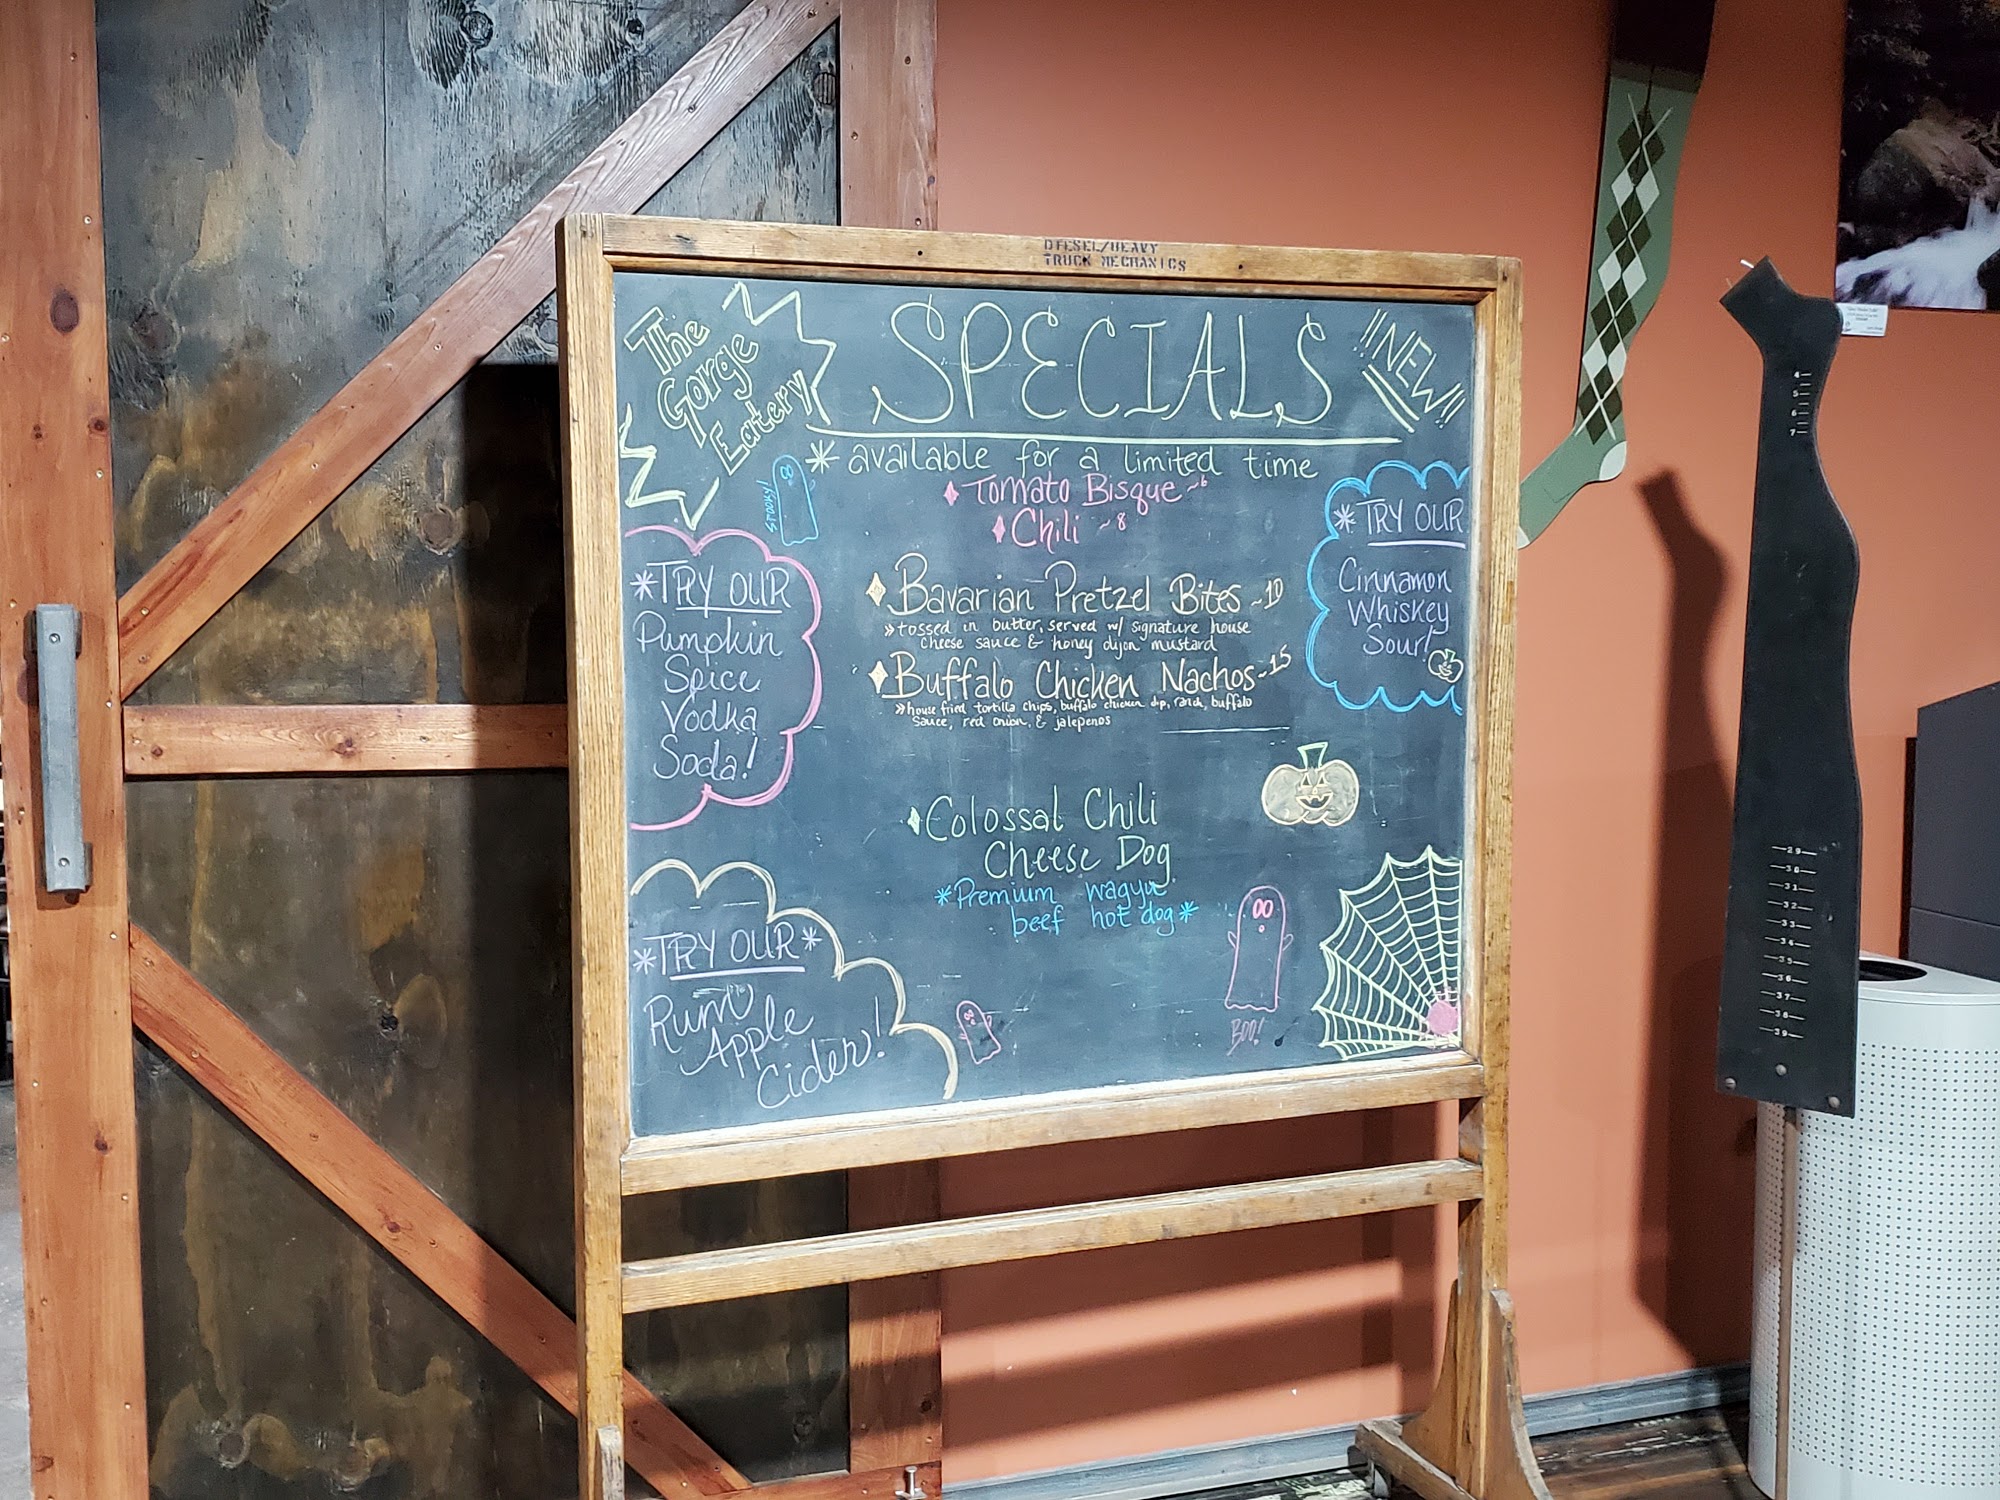 DIESEL/HEAVY
TRUCK MECHANICS
The
Gorge
Eatery
SPECIALS
!!NEW!!
* available for a limited time
Tomato Bisque ~6
Chili ~8
SPOOKY!
* TRY OUR
Pumpkin
Spice
Vodka
Soda!
Bavarian Pretzel Bites ~10
» tossed in butter, served w/ signature house
cheese sauce & honey dijon mustard
Buffalo Chicken Nachos ~15
» house fried tortilla chips, buffalo chicken dip, ranch, buffalo
sauce, red onion, & jalepenos
* TRY OUR
Cinnamon
Whiskey
Sour!
Colossal Chili
Cheese Dog
* Premium wagyu
beef hot dog *
* TRY OUR *
Rum
Apple
Cider!
BOO!
4
5
6
7
29
30
31
32
33
34
35
36
37
38
39